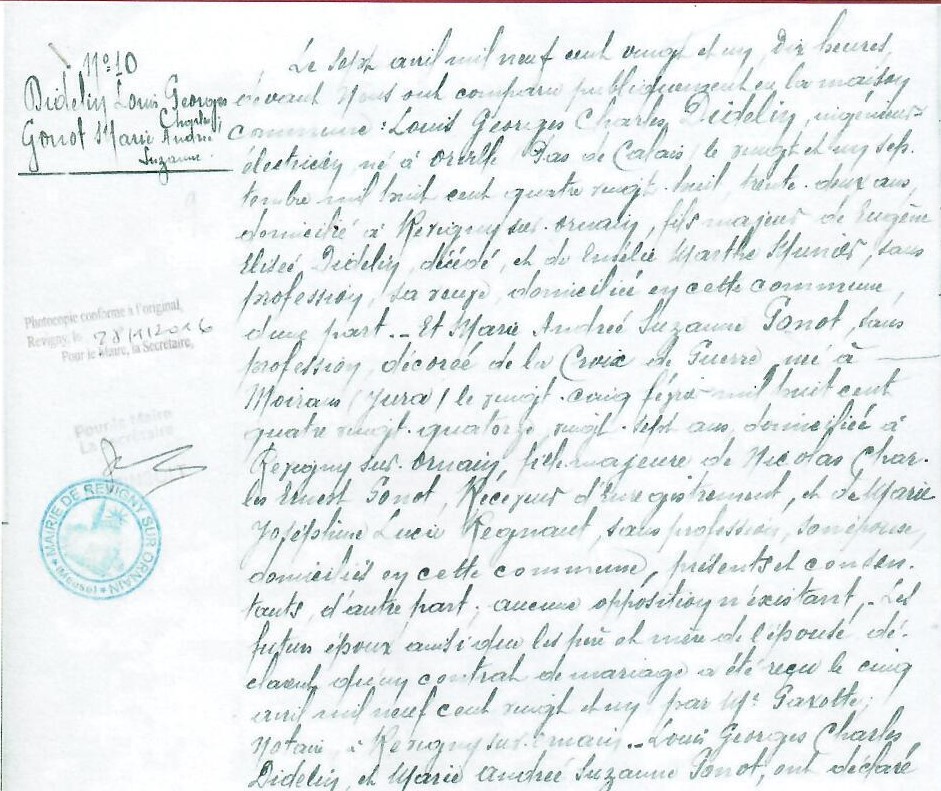 N° 10
Didelin Louis Georges
Charles,
Gonot Marie Andrée
Suzanne.
Le sept avril mil neuf cent vingt et un, dix heures,
devant Nous ont comparu publiquement en la maison
commune : Louis Georges Charles Didelin, ingénieur
électricien, né à Oreville (Pas de Calais) le vingt et un sep-
tembre mil huit cent quatre vingt huit, trente deux ans,
domicilié à Revigny sur Ornain, fils majeur de Eugène
Elisée Didelin, décédé, et de Emélie Marthe Munier, sans
profession, sa veuve, domiciliée en cette commune,
d'une part. _ Et Marie Andrée Suzanne Gonot, sans
profession, décorée de la Croix de Guerre, née à
Moirans (Jura) le vingt cinq février mil huit cent
quatre vingt quatorze, vingt sept ans, domiciliée à
Revigny sur Ornain, fille majeure de Nicolas Char-
les Ernest Gonot, Receveur d'Enregistrement, et de Marie
Joséphine Lucie Regnaut, sans profession, son épouse,
domiciliés en cette commune, présents et consen-
tants, d'autre part ; aucune opposition n'existant. _ Les
futurs époux ainsi que les père et mère de l'épouse, dé-
clarent qu'un contrat de mariage a été reçu le cinq
avril mil neuf cent vingt et un par Me Gaxotte,
Notaire à Revigny sur Ornain. _ Louis Georges Charles
Didelin, et Marie Andrée Suzanne Gonot, ont déclaré
Photocopie conforme à l'original,
Revigny, le 28/11/2016
Pour le Maire, la Secrétaire,
Pour le Maire
La Secrétaire
MAIRIE DE REVIGNY SUR ORNAIN
(Meuse)